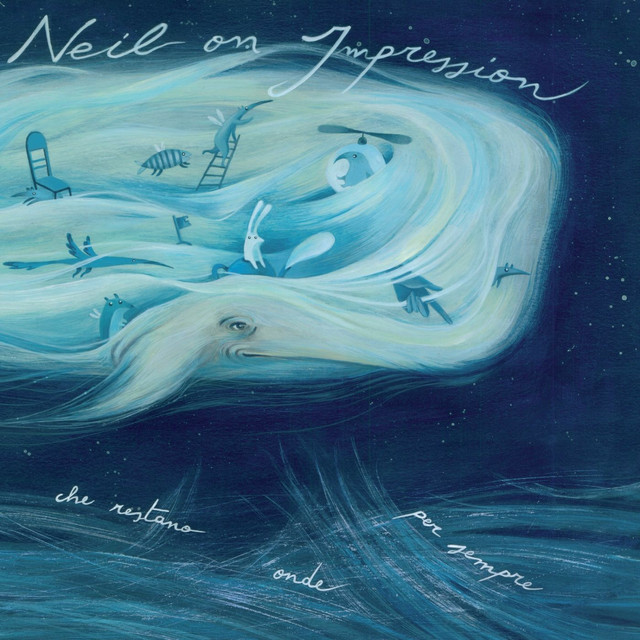 Neil on Impression
che restano
onde
per sempre